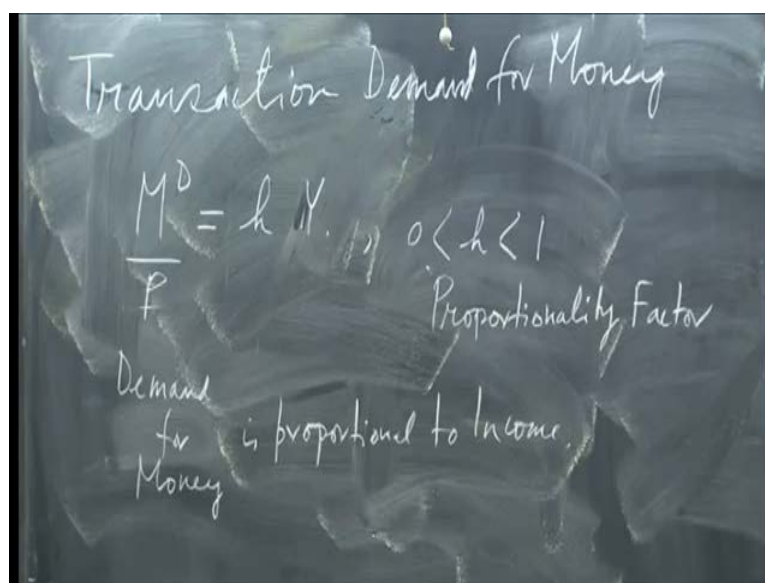 Transaction Demand for Money
M^D/P = h Y. , 0 < h < 1
Proportionality Factor
Demand for Money is proportional to Income.